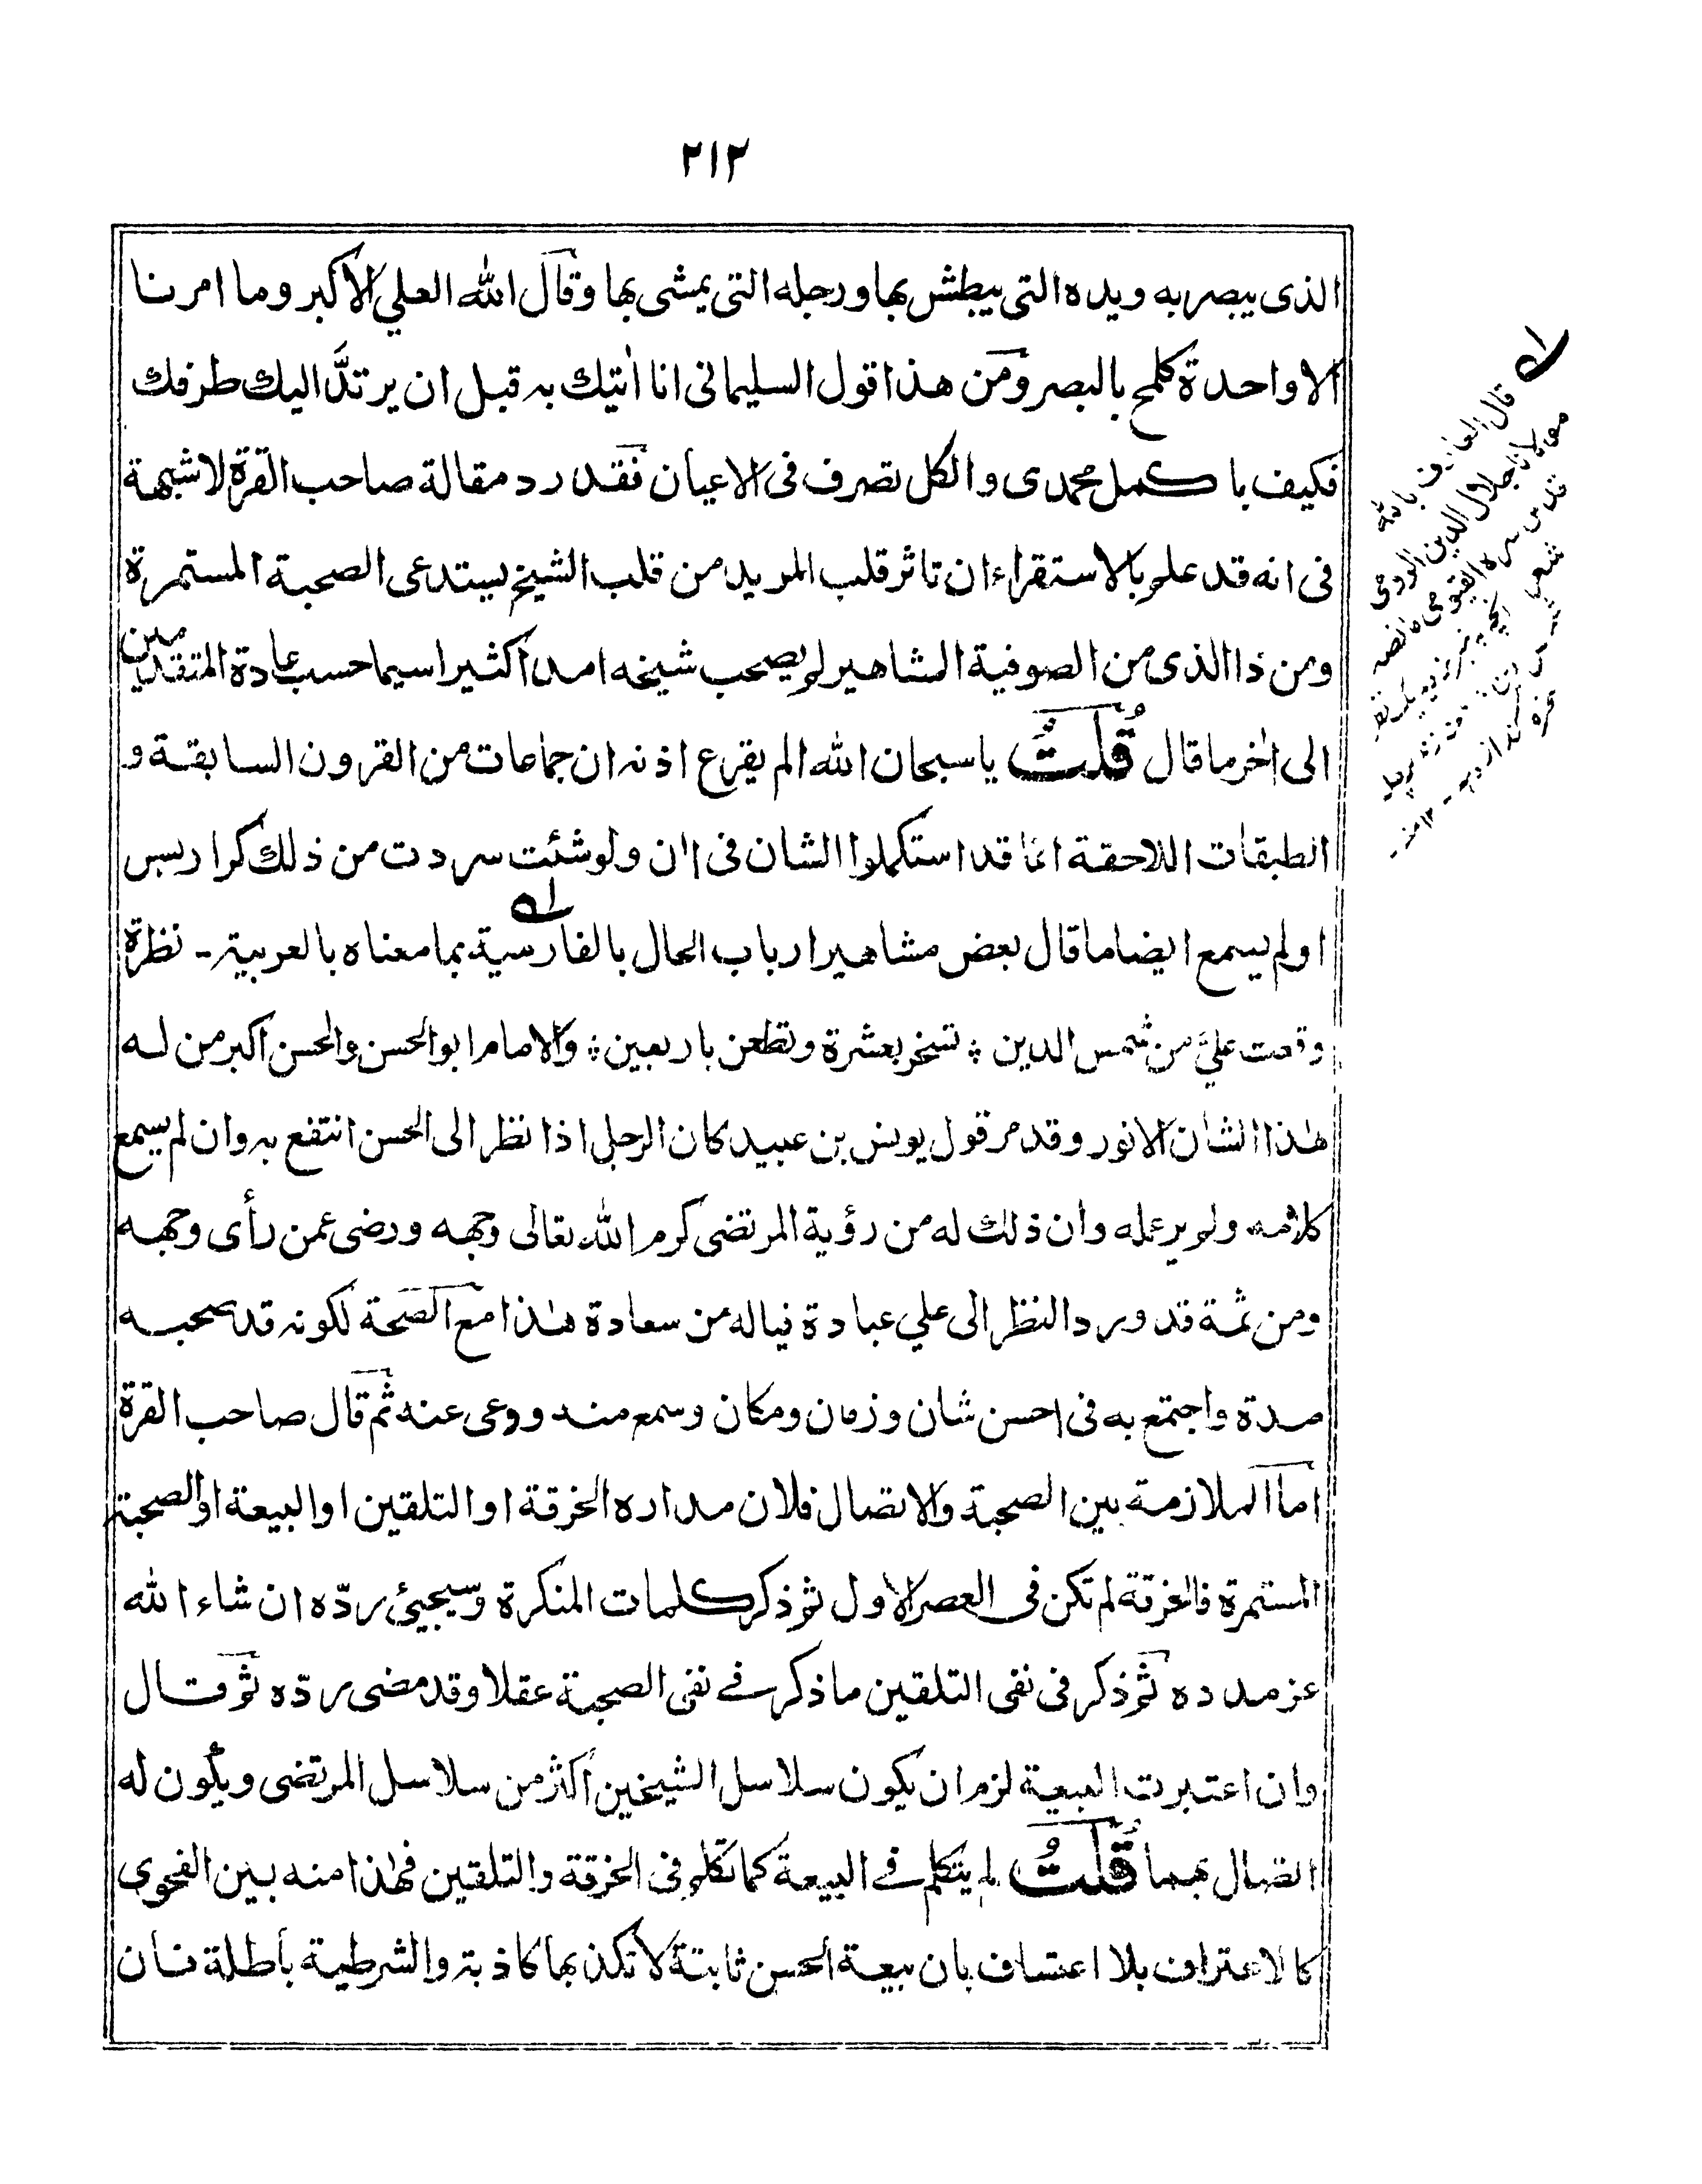 ٢١٢
الذى يبصر به ويده التى يبطش بها ورجله التى يمشى بها وقال الله العلي الاكبر وما امرنا
الا واحدة كلمح بالبصر ومن هذا قول السليمانى انا اٰتيك به قبل ان يرتدَّ اليك طرفك
فكيف باكمل محمدى والكل تصرف فى الاعيان فقد رد مقالة صاحب القرة لا شبهة
فى انه قد علم بالاستقراء ان تاثر قلب المريد من قلب الشيخ يستدعى الصحبة المستمرة
ومن ذا الذى من الصوفية المشاهير لم يصحب شيخه امدا كثيرا سيما حسب عادة المتقدمين
الى اٰخر ما قال قُلْتُ يا سبحان الله الم يقرع اذنه ان جماعات من القرون السابقة و
الطبقات اللاحقة انما قد استكملوا الشان فى اٰن ولو شئت سردت من ذلك كراريس
او لم يسمع ايضا ما قال بعض مشاهير ارباب الحال بالفارسية بما معناه بالعربية - نظرة
وقعت عليَّ من شمس الدين ؛ تسخر بعشرة وتطعن باربعين ؛ والامام ابو الحسن والحسن اكبر من له
هٰذا الشان الانور وقد مر قول يونس بن عبيد كان الرجل اذا نظر الى الحسن انتفع به وان لم يسمع
كلامه ولم ير عمله وان ذلك له من رؤية المرتضى كرم الله تعالى وجهه ورضى عمن رأى وجهه
ومن ثمة قد ورد النظر الى علي عبادة فياله من سعادة هٰذا مع الصحة لكونه قد صحبه
مدة واجتمع به فى احسن شان وزمان ومكان وسمع منه ووعى عنه ثم قال صاحب القرة
اما الملازمة بين الصحبة والاتصال فلان مداره الخرقة او التلقين او البيعة او الصحبة
المستمرة فالخرقة لم تكن فى العصر الاول ثم ذكر كلمات المنكرة وسيجيئ ردّه ان شاء الله
عز مدده ثم ذكر فى نفى التلقين ما ذكر فے نفى الصحبة عقلا وقد مضى ردّه ثم قال
وان اعتبرت البيعة لزم ان يكون سلاسل الشيخين أكثر من سلاسل المرتضى ويكون له
اتصال بهما قُلْتُ لم يتكلم فے البيعة كما تكلم فى الخرقة والتلقين فهٰذا منه بين الفحوى
كالاعتراف بلا اعتساف بان بيعة الحسن ثابتة لا تكذبها كاذبة والشرطية باطلة فان
قال العارف بالله
مولانا جلال الدين الرومى
قدس سره القيومى ما نصه
شعر